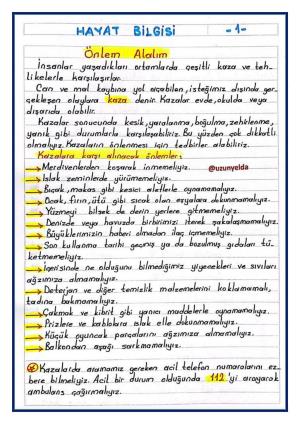 HAYAT BİLGİSİ -1-
Önlem Alalım
İnsanlar yaşadıkları ortamlarda çeşitli kaza ve teh-
likelerle karşılaşırlar.
Can ve mal kaybına yol açabilen, isteğimiz dışında ger-
çekleşen olaylara kaza denir. Kazalar evde, okulda veya
dışarıda olabilir.
Kazalar sonucunda kesik, yaralanma, boğulma, zehirlenme,
yanık gibi durumlarla karşılaşabiliriz. Bu yüzden çok dikkatli
olmalıyız. Kazaların önlenmesi için tedbirler alabiliriz.
Kazalara karşı alınacak önlemler:
Merdivenlerden koşarak inmemeliyiz. @uzunyelda
Islak zeminlerde yürümemeliyiz.
Bıçak, makas gibi kesici aletlerle oynamamalıyız.
Ocak, fırın, ütü gibi sıcak olan eşyalara dokunmamalıyız.
Yüzmeyi bilsek de derin yerlere gitmemeliyiz.
Denizde veya havuzda birbirimizi iterek şakalaşmamalıyız.
Büyüklerimizin haberi olmadan ilaç içmemeliyiz.
Son kullanma tarihi geçmiş ya da bozulmuş gıdaları tü-
ketmemeliyiz.
İçerisinde ne olduğunu bilmediğimiz yiyecekleri ve sıvıları
ağzımıza almamalıyız.
Deterjan ve diğer temizlik malzemelerini koklamamalı,
tadına bakmamalıyız.
Çakmak ve kibrit gibi yanıcı maddelerle oynamamalıyız.
Prizlere ve kablolara ıslak elle dokunmamalıyız.
Küçük oyuncak parçalarını ağzımıza almamalıyız.
Balkondan aşağı sarkmamalıyız.
Kazalarda aramamız gereken acil telefon numaralarını ez-
bere bilmeliyiz. Acil bir durum olduğunda 112'yi arayarak
ambulans çağırmalıyız.